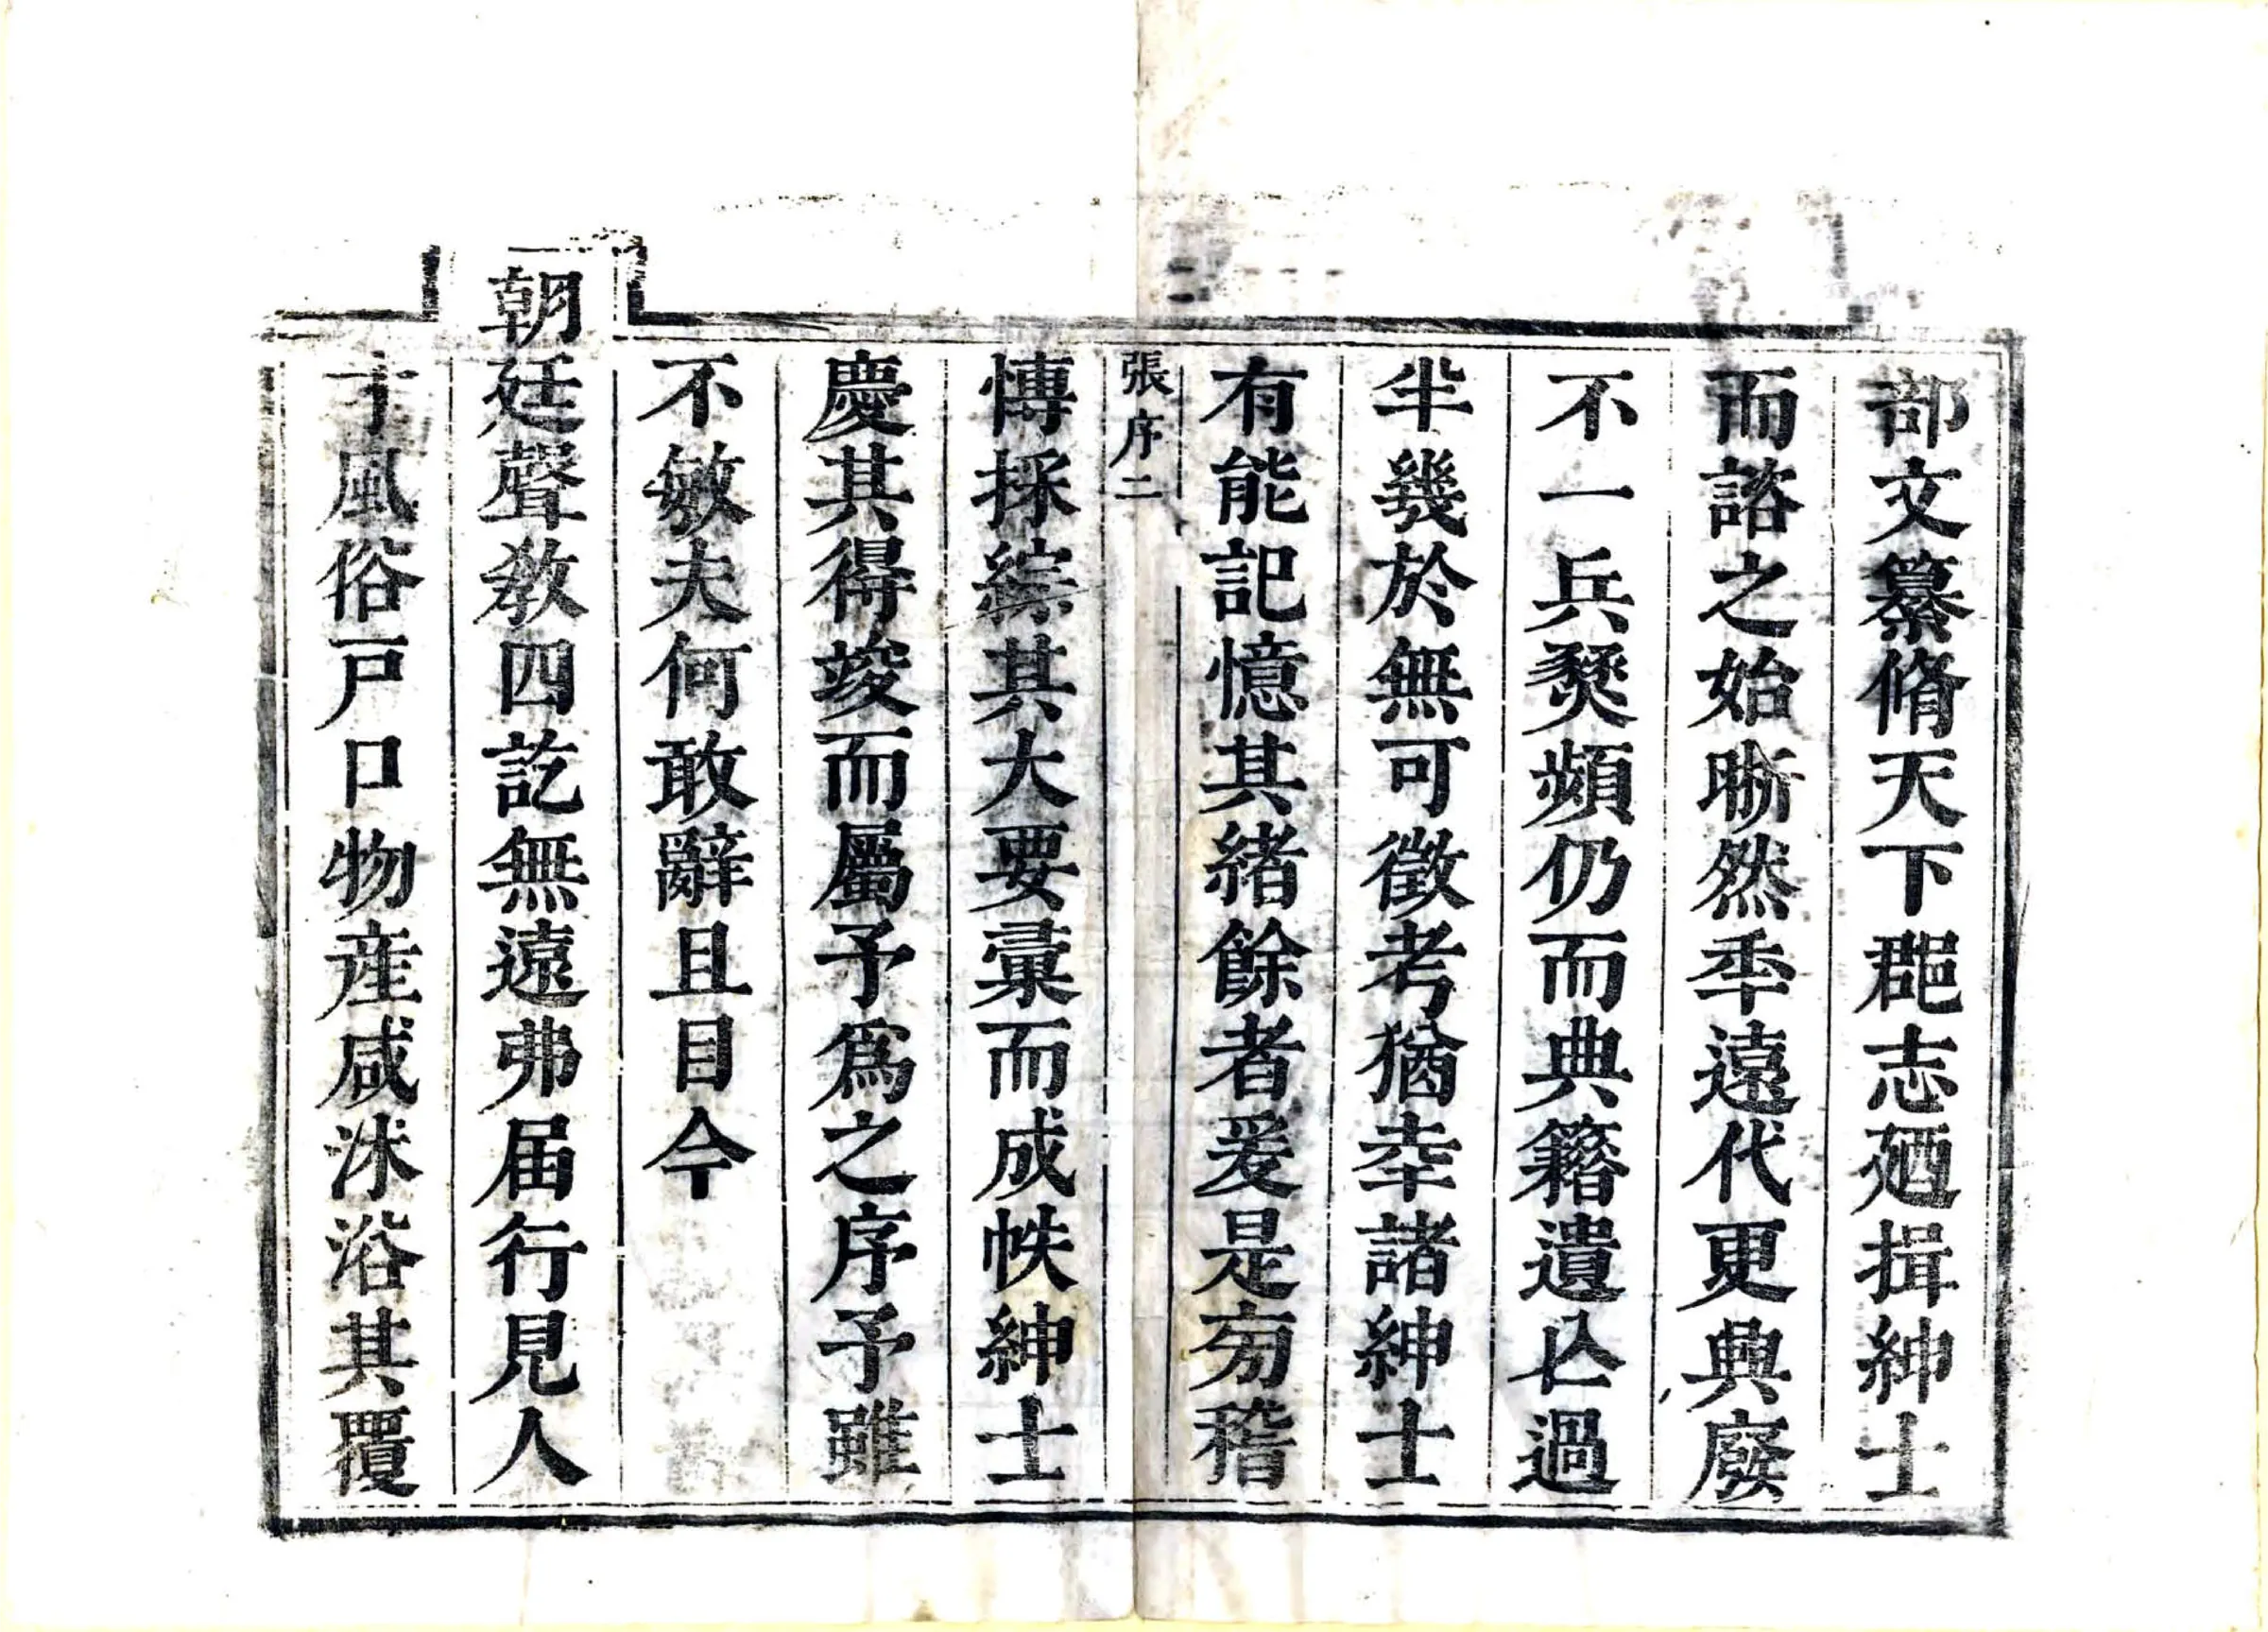 部文纂脩天下郡志廼揖紳士
而諮之始晰然季遠代更興廢
不一兵燹頻仍而典籍遺亾過
半幾於無可徵考猶幸諸紳士
有能記憶其緒餘者爰是旁稽
張序二
慱採綜其大要彙而成帙紳士
慶其得竣而屬予爲之序予雖
不敏夫何敢辭且目今
朝廷聲教四訖無遠弗届行見人
于風俗戸口物産咸沐浴其覆